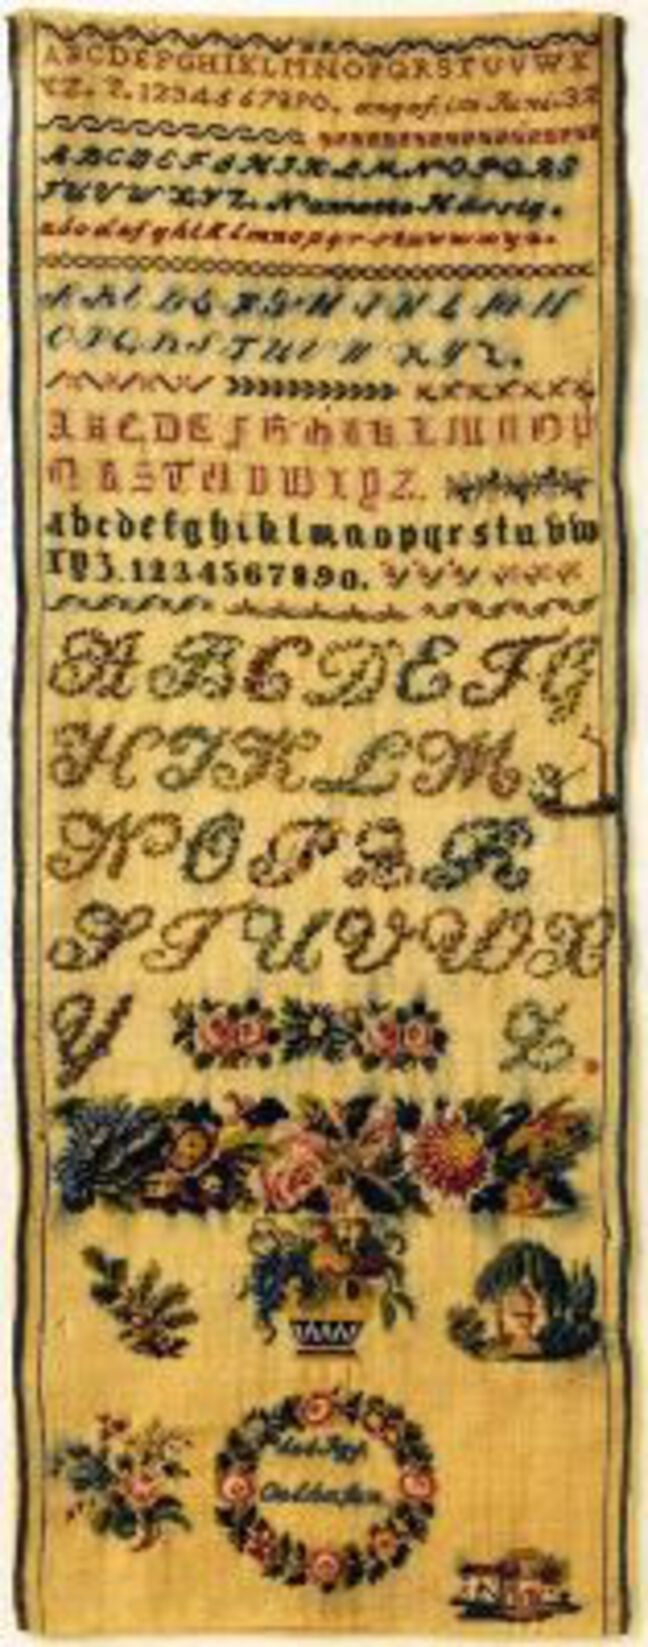 ABCDEFGHIKLMNOPQRSTUVWX
YZ. Z. 1234567890. angef. im Juni. 32
ABCDEFGHIKLMNOPQRS
TUVWXYZ. Nannette
abcdefghiklmnopqrstuvwxyz.
A B C D E F G H I K L M N
O P Q R S T U V W X Y Z.
A B C D E F G H I K L M N O P
Q R S T U V W X Y Z.
abcdefghiklmnopqrstuvw
xyz. 1234567890.
A B C D E F G
H I K L M
N O P Q R
S T U V W X
Y Z.